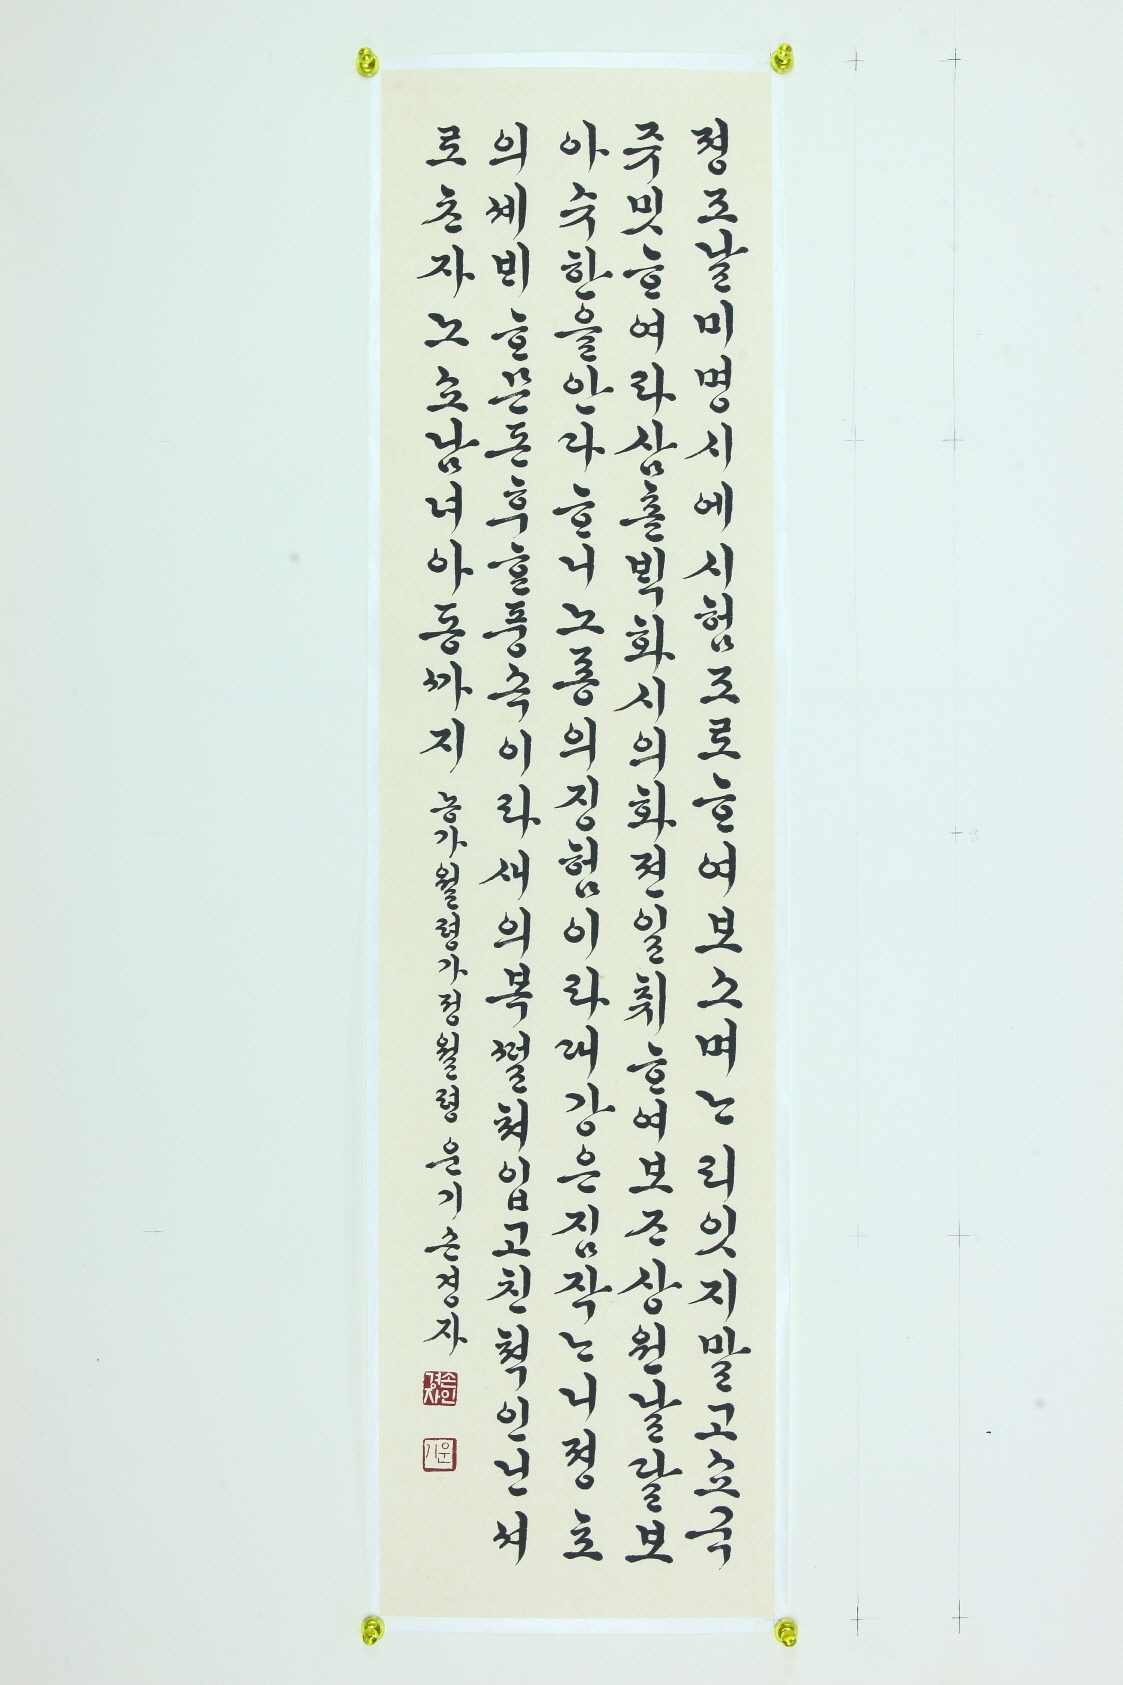 졍조날미명시에시험조로ᄒᆞ여보소며ᄂᆞ리잇지말고쇼국
쥬밋ᄒᆞ여라삼츈ᄇᆡᆨ화시의화젼일취ᄒᆞ여보ᄌᆞ상원날달보
아슈한을안다ᄒᆞ니노롱의징험이라대강은짐작ᄂᆞ니졍초
의셰ᄇᆡᄒᆞᄂᆞᆫ돈후ᄒᆞᆫ풍속이라새의복ᄯᅥᆯ쳐입고친쳑인닌셔
로ᄎᆞ자노쇼남녀아동까지 농가월령가정월령 운기손경자
손인경자
운기